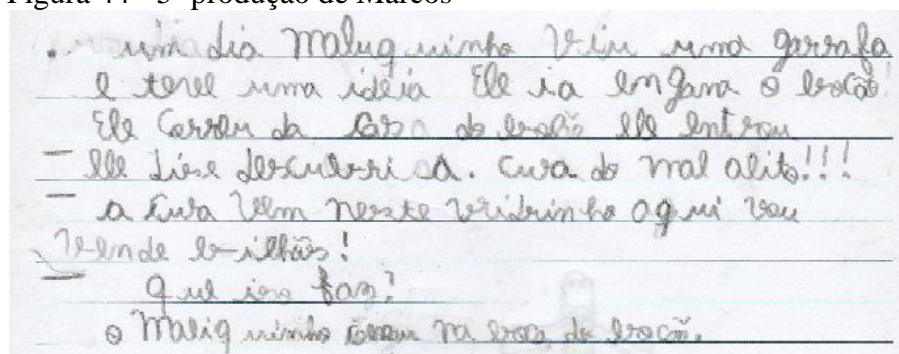 Figura 44 - 3ª produção de Marcos
... um dia Maluquinho viu uma garrafa
e teve uma idéia Ele ia engana o bocão!
Ele Correu da casa do bocão ele entrou
— ele dise descubri a. cura do mal alito!!!
— a cura vem neste vidrinho aqui vou
vende bilhões!
— que iso faz?
o Maliquinho na boca do bocão.